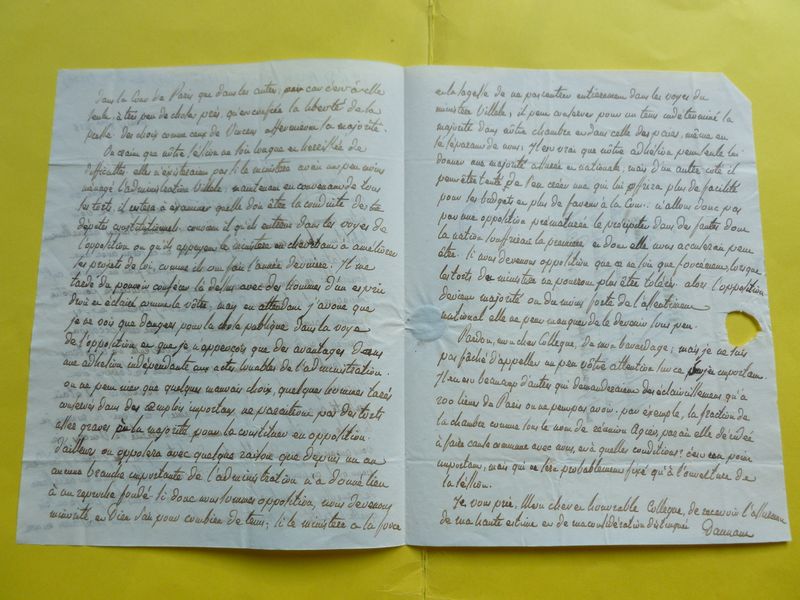 dans la Cour de Paris que dans les autres; mais
seule, à très peu de chose près, qu'on confiera la liberté de la
presse. des choix comme ceux de affermeront la majorité.
On craint que nôtre session ne soit longue et hérissée de
difficultés; elles n'existeraient pas si le ministère avait un peu moins
ménagé l'administration Villele; maintenant en convenant de tous
les torts, il restera à examiner quelle doit être la conduite des
députés constitutionnels. convient il qu'ils entrent dans les voyes de
l'opposition ou qu'ils appuyent le ministère en cherchant à améliorer
ses projets de loi, comme ils ont fait l'année dernière. Il me
tarde de pouvoir conférer là dessus avec des hommes d'un esprit
droit et éclairé comme le vôtre; mais en attendant j'avoue que
je ne vois que dangers pour la chose publique dans la voye
de l'opposition et que je n'apperçois que des avantages dans
une adhésion indépendante aux actes louables de l'administration.
on ne peut nier que quelques mauvais choix, quelques hommes tarés
conservés dans des emplois importans ne paraîtront pas des torts
assez graves à la majorité pour la constituer en opposition.
d'ailleurs on opposera avec quelque raison que depuis un an
aucune branche importante de l'administration n'a donné lieu
à un reproche fondé. si donc nous sommes opposition, nous devenons
minorité, et Dieu sait pour combien de tems; si le ministère a la force
et la sagesse de ne pas rentrer entièrement dans les voyes du
ministère Villele, il peut conserver pour un tems indéterminé la
majorité dans nôtre chambre et dans celle des pairs, même en
se séparant de nous. Il est vrai que nôtre adhésion peut seule lui
donner une majorité assurée et nationale; mais d'un autre côté il
peut être tenté de s'en créer une qui lui offrira plus de facilité
pour les budgets et plus de faveur à la Cour. n'allons donc pas
par une opposition prématurée le précipiter dans des fautes dont
la nation souffrirait la première et dont elle nous accuserait peut
être. Si nous devenons opposition que ce ne soit que forcément, lorsque
les torts des ministres ne pourront plus être tolérés. alors l'opposition
devient majorité ou du moins forte de l'assentiment
national elle ne peut manquer de le devenir sous peu.
Pardon, mon cher Collègue, de mon bavardage; mais je ne suis
pas fâché d'appeller un peu vôtre attention sur ce sujet important.
Il en est beaucoup d'autres qui demanderaient des éclaircissemens qu'à
200 lieues de Paris on ne peut pas avoir. par exemple, la fraction de
la chambre connue sous le nom de réunion Agier, paraît elle décidée
à faire cause commune avec nous, et à quelles conditions? c'est un point
important, mais qui ne sera probablement fixé qu'à l'ouverture de
la session.
Je vous prie, Mon cher et honorable Collègue, de recevoir l'assurance
de ma haute estime et de ma considération distinguée.